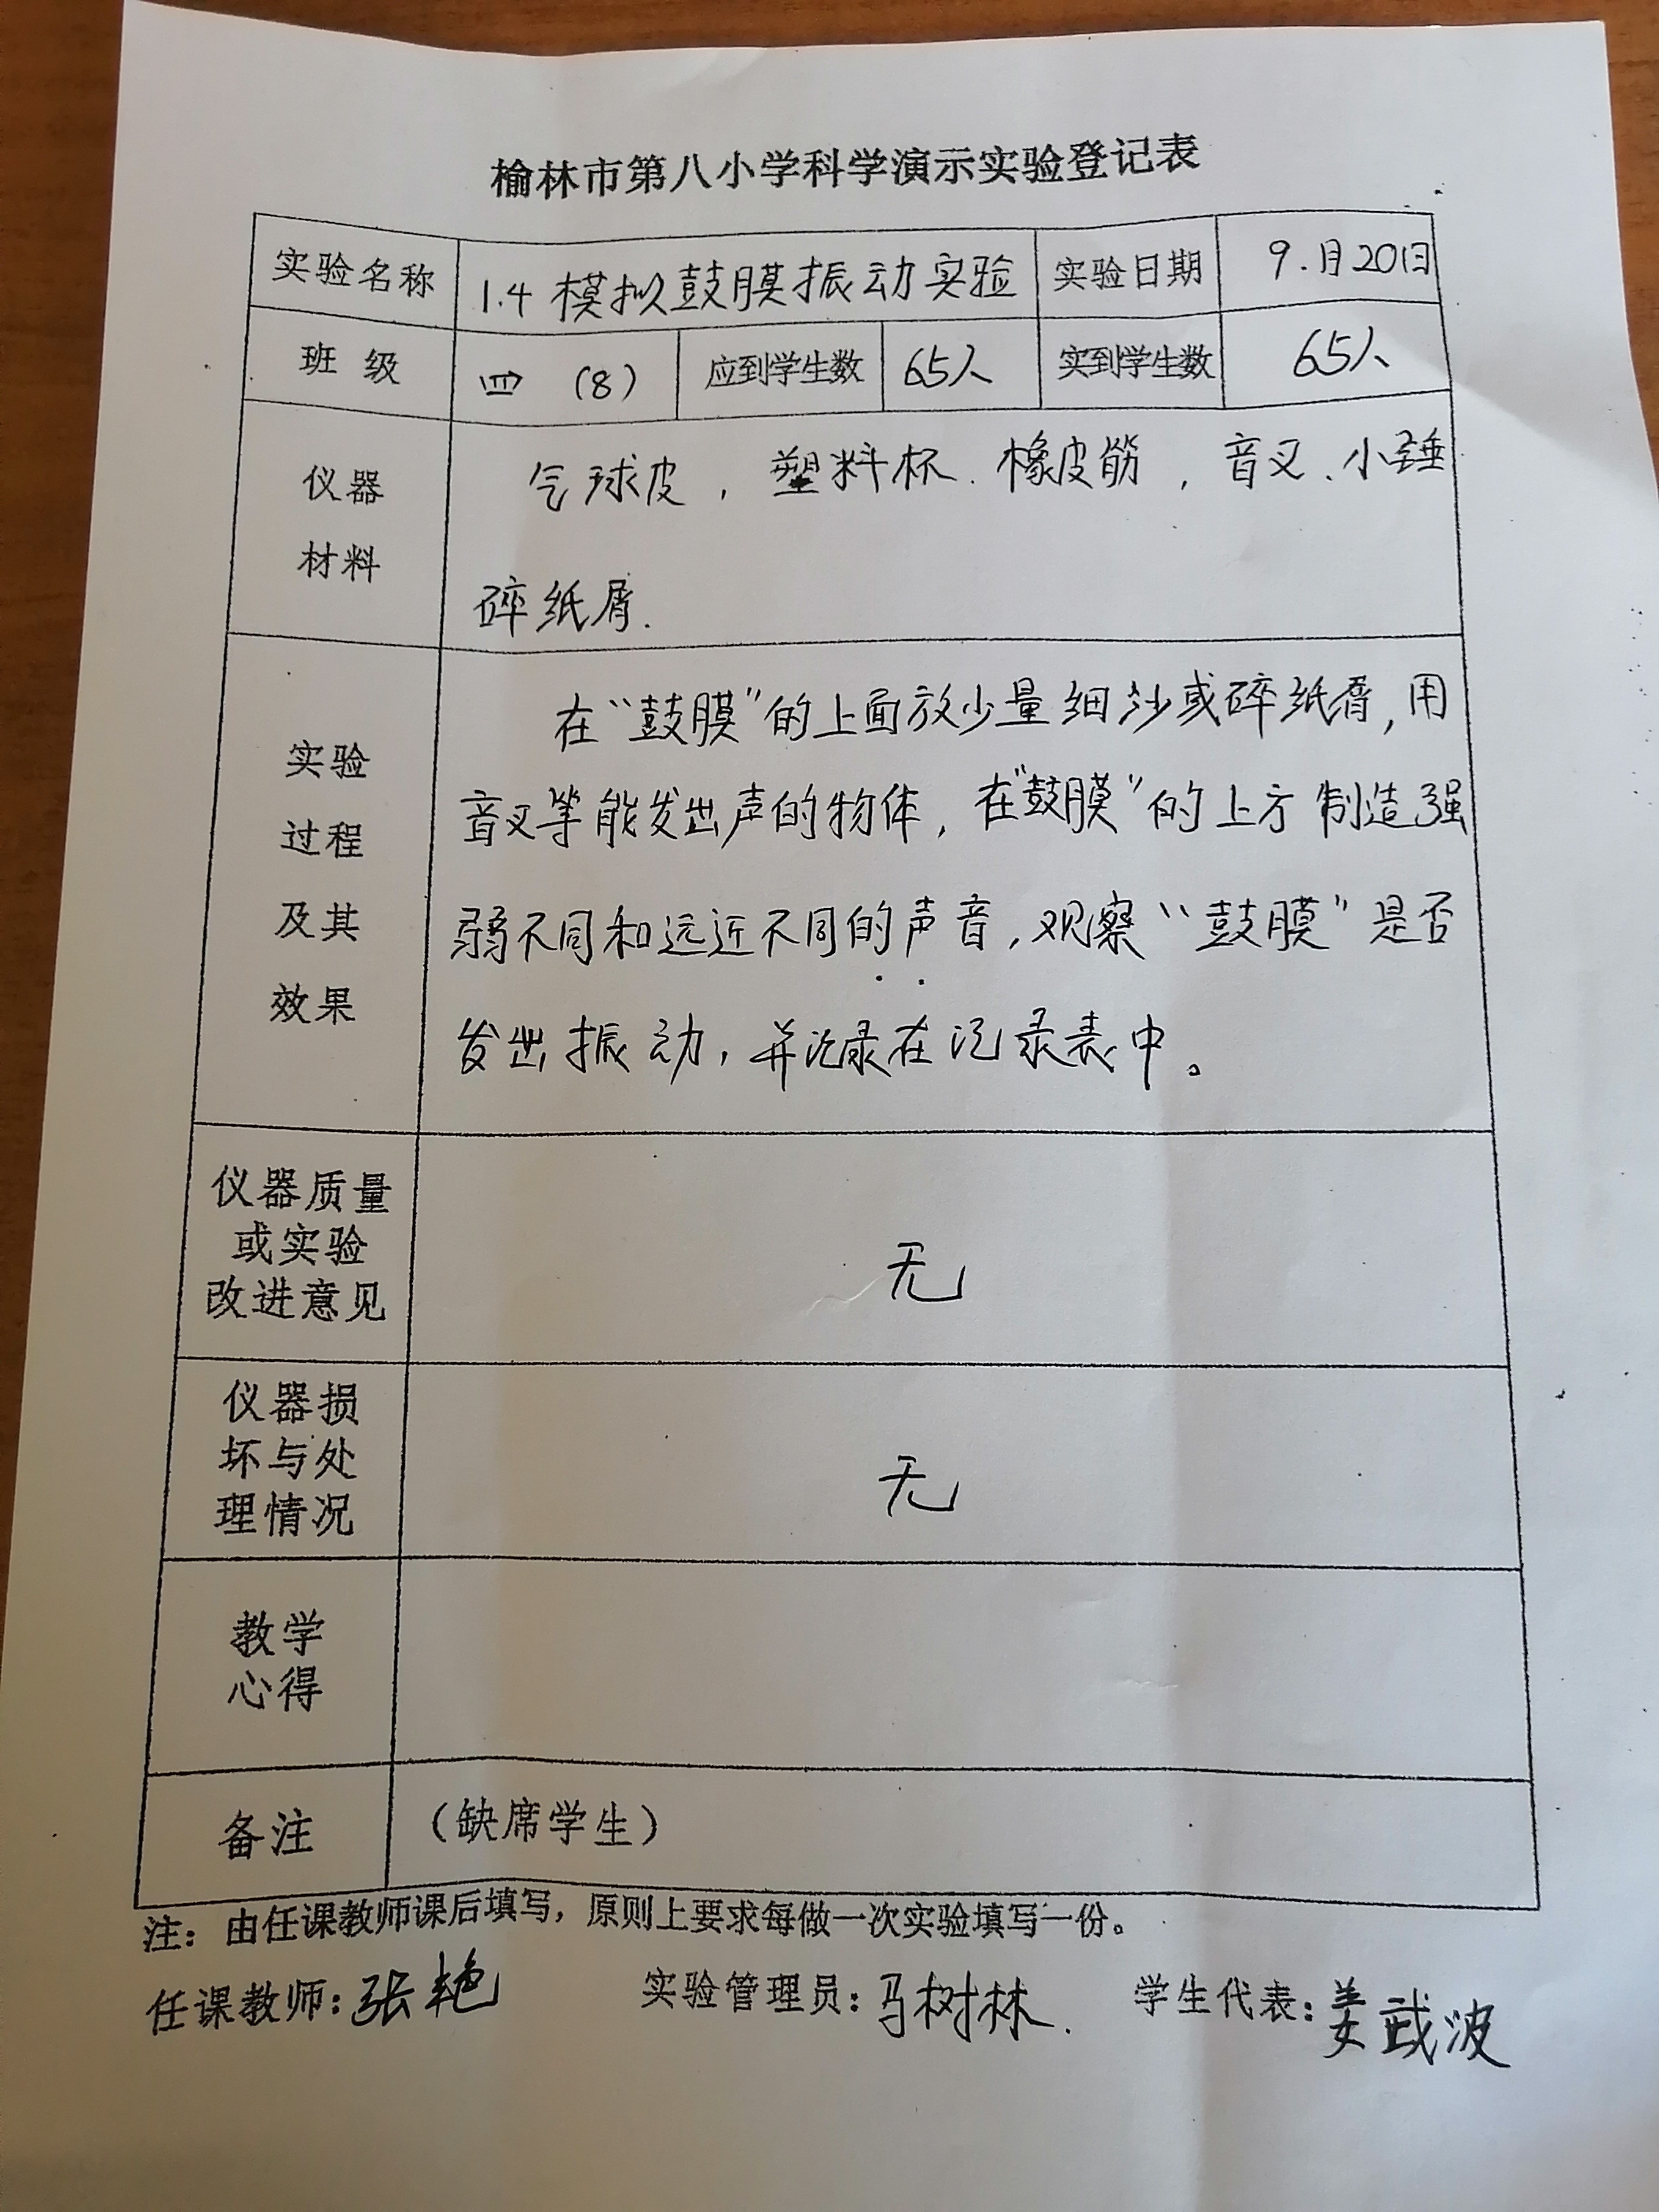 榆林市第八小学科学演示实验登记表
实验名称 1.4 模拟鼓膜振动实验 实验日期 9.月20日
班 级 四 (8) 应到学生数 65人 实到学生数 65人
仪器
材料
气球皮，塑料杯、橡皮筋，音叉、小锤
碎纸屑.
实验
过程
及其
效果
在“鼓膜”的上面放少量细沙或碎纸屑，用
音叉等能发出声的物体，在“鼓膜”的上方制造强
弱不同和远近不同的声音，观察“鼓膜”是否
发出振动，并记录在记录表中。
仪器质量
或实验
改进意见
无
仪器损
坏与处
理情况
无
教学
心得
备注 （缺席学生）
注：由任课教师课后填写，原则上要求每做一次实验填写一份。
任课教师：张艳 实验管理员：马树林. 学生代表：姜波